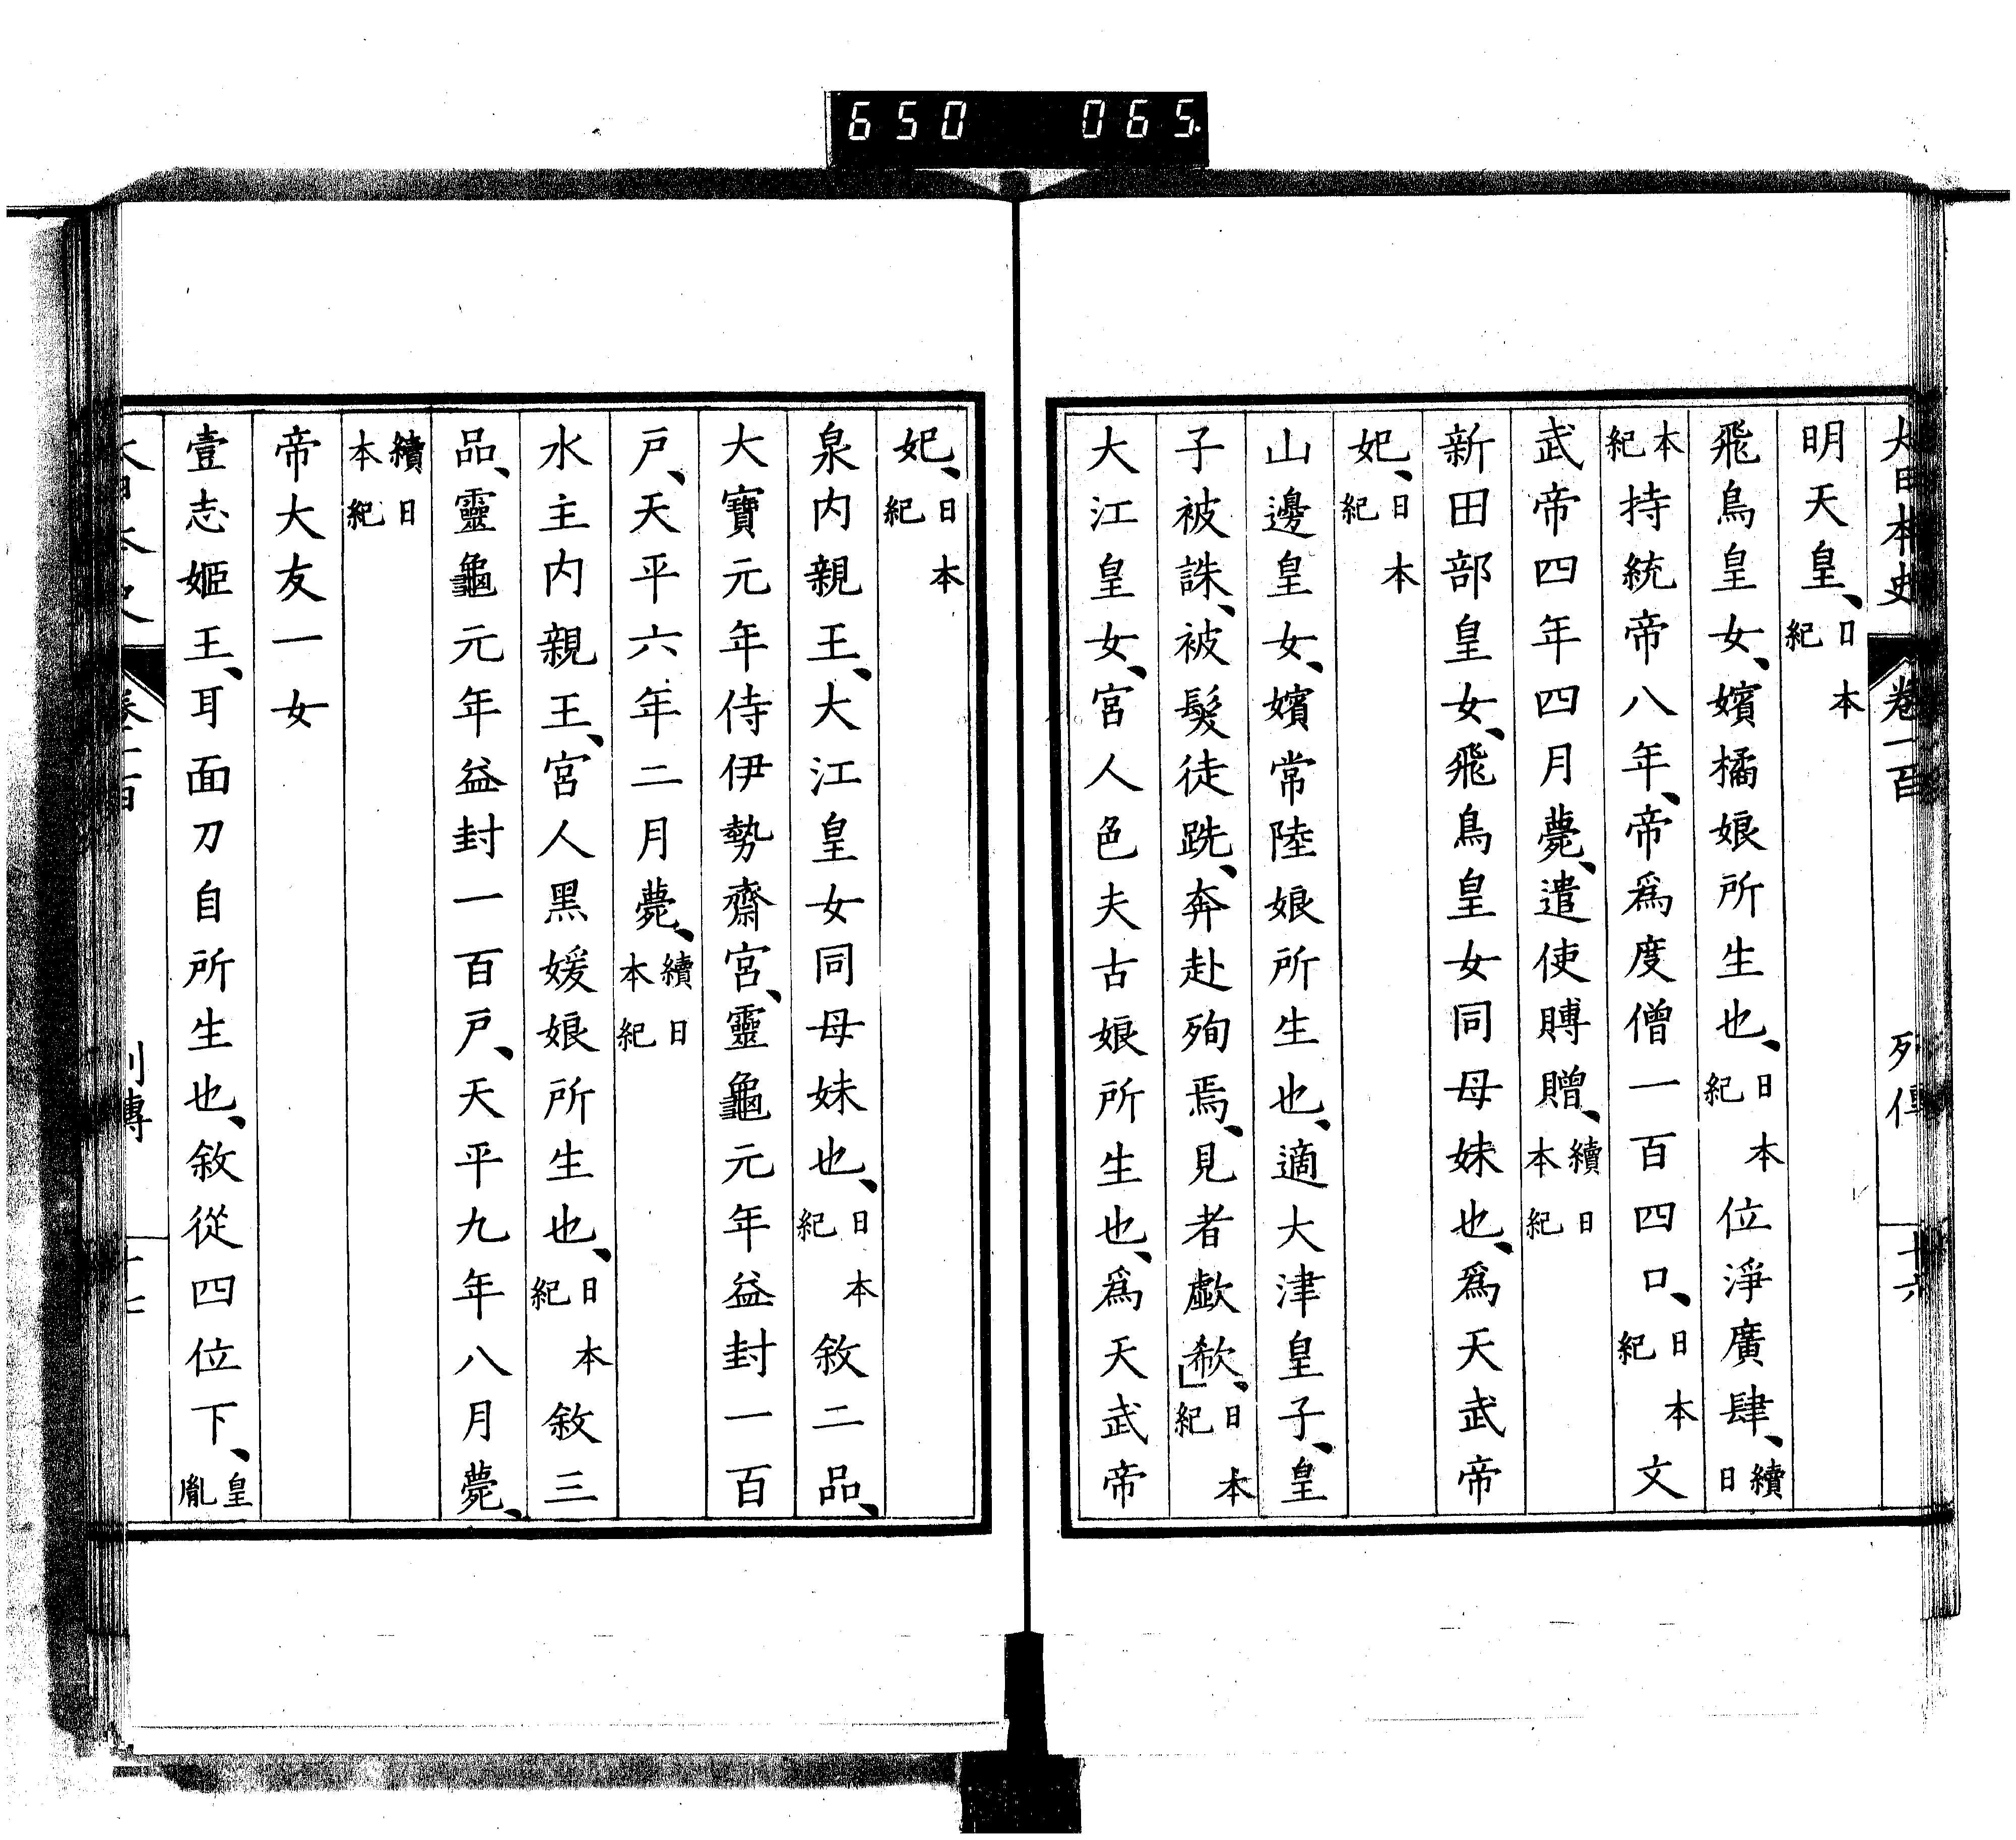 650 065
大日本史 卷一百 列傳 十六
明天皇、日本紀
飛鳥皇女、嬪橘娘所生也、日本紀位淨廣肆、續日
本紀持統帝八年、帝爲度僧一百四口、日本紀文
武帝四年四月薨、遣使賻贈、續日本紀
新田部皇女、飛鳥皇女同母妹也、爲天武帝
妃、日本紀
山邊皇女、嬪常陸娘所生也、適大津皇子、皇
子被誅、被髮徒跣、奔赴殉焉、見者歔欷、日本紀
大江皇女、宮人色夫古娘所生也、爲天武帝
妃、日本紀
泉内親王、大江皇女同母妹也、日本紀敘二品、
大寶元年侍伊勢齋宮、靈龜元年益封一百
戸、天平六年二月薨、續日本紀
水主内親王、宮人黑媛娘所生也、日本紀敘三
品、靈龜元年益封一百戸、天平九年八月薨、
續日本紀
帝大友一女
壹志姬王、耳面刀自所生也、敘從四位下、皇胤
大日本史 卷一百 列傳 十七